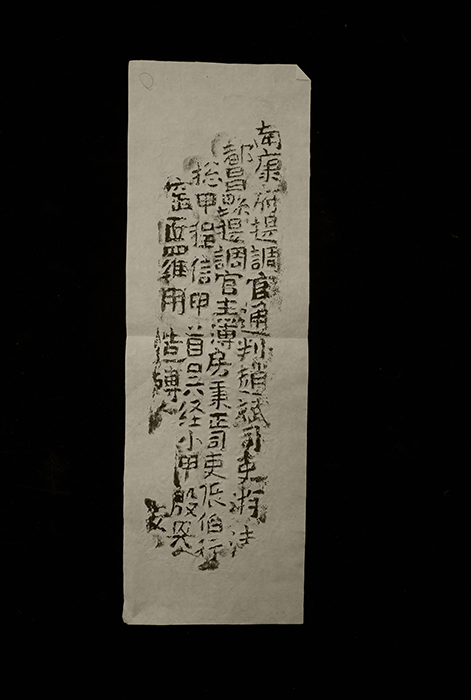 南康府提調官通判趙斌司吏游清
都昌縣提調官主簿房秉正司吏張伯行
総甲程信甲首六経小甲殷
窑匠維用造磚人